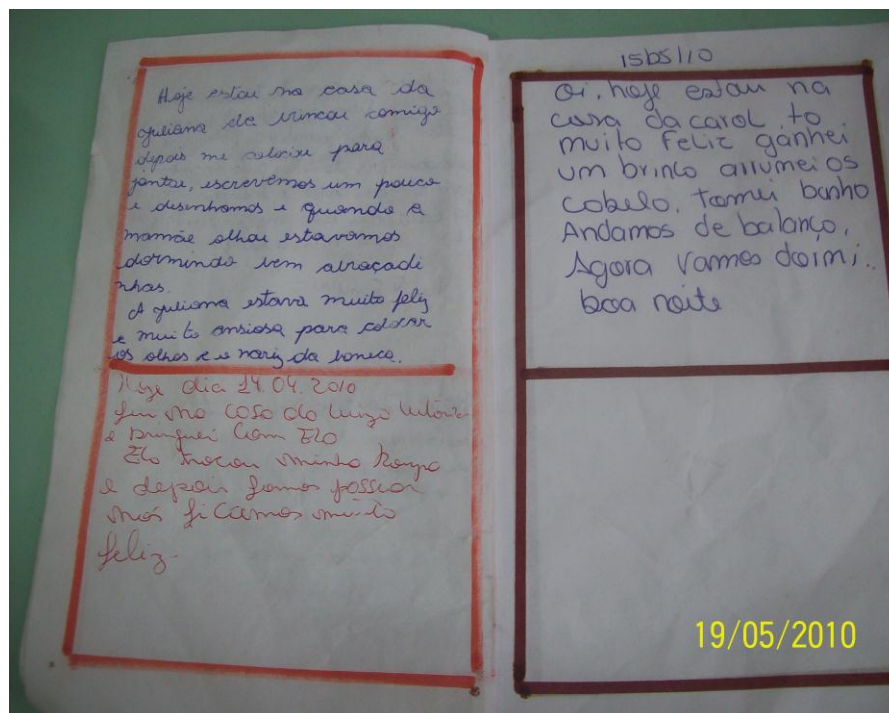 Hoje estou na casa da
Juliana ela brincou comigo
depois me colocou para
jantar, escrevemos um pouco
e desenhamos e quando a
mamãe olhou estavamos
dormindo bem abraçadi
nhas.
A Juliana estava muito feliz
e muito ansiosa para colocar
os olhos e o nariz da boneca.
Hoje dia 24.04.2010
fui na casa da
e brinquei com Ela
Ela trocou minha Roupa
e depois fomos passear
nós ficamos muito
feliz.
15/05/10
Oi, hoje estou na
casa da carol, to
muito feliz ganhei
um brinco arrumei os
cabelo, tomei banho
Andamos de balanço,
Agora vamos dormi.
boa noite
19/05/2010